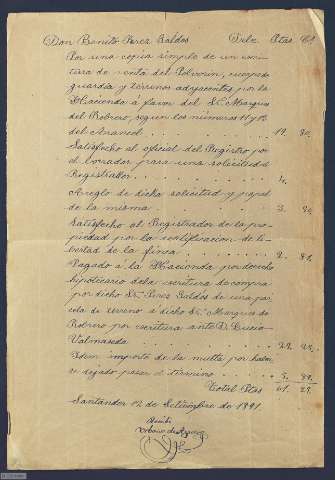 Don Benito Perez Galdos Debe Ptas Cs
Por una copia simple de un escri
tura de venta del Polvorin, cuerpo de
guardia y terrenos adyacentes por la
Hacienda á favor del Sr. Marques
del Robrero, segun los números 11 y 18
del Arancel
Satisfecho al oficial del Registro por
el borrador para una solicitud al
Registrador
Arreglo de dicha solicitud y papel
de la misma
Satisfecho al Registrador de la pro
piedad por la certificacion de li
bertad de la finca
Pagado á la Hacienda por derecho
hipotecario de la escritura de compra
por dicho Sr. Perez Galdos de una par
cela de terreno á dicho Sr. Marques de
Robrero por escritura ante D. Lucio
Valmaseda
Idem importe de la multa por haber
se dejado pasar el termino
Total Ptas
Santander 12 de Setiembre de 1891
Recibi